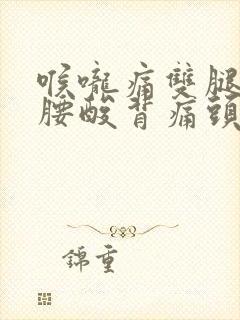 喉嚨痛雙腿
腰酸背痛頭
錦重